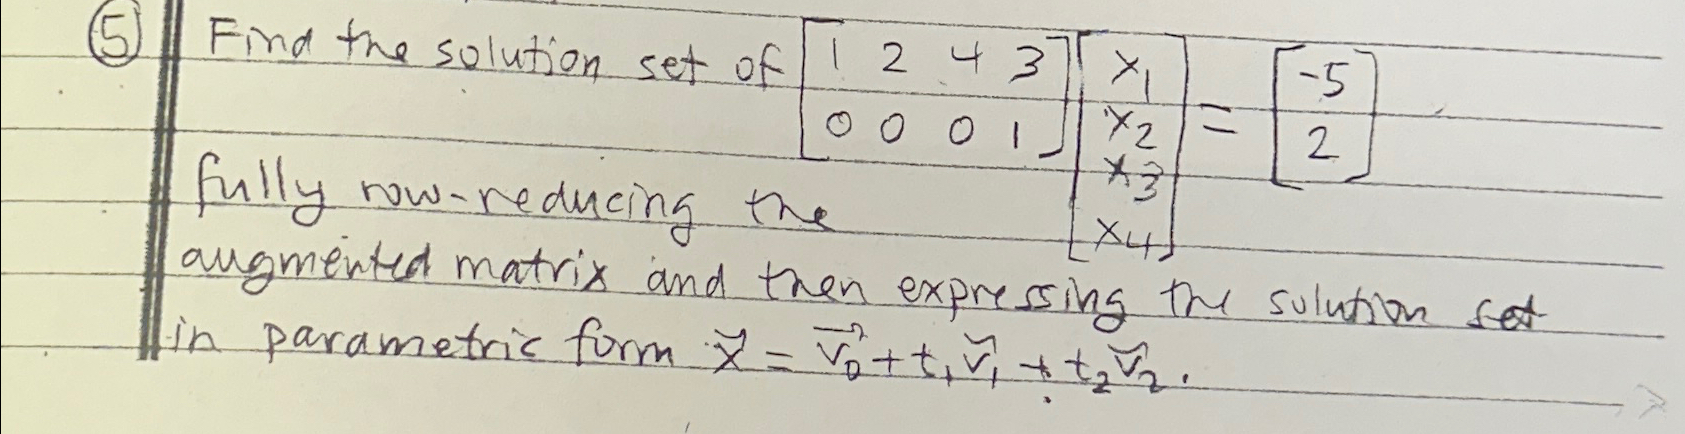 ⑤ Find the solution set of [1 2 4 3; 0 0 0 1] [x₁; x₂; x₃; x₄] = [-5; 2]
fully row-reducing the
augmented matrix and then expressing the solution set
in parametric form x⃗ = v⃗₀ + t₁v⃗₁ + t₂v⃗₂.